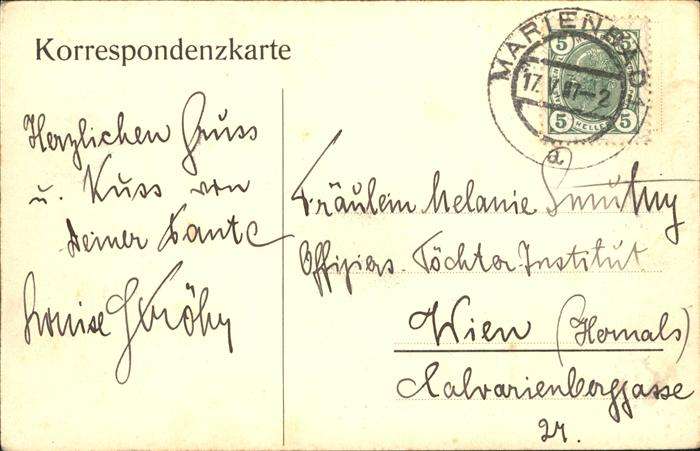 Korrespondenzkarte
MARIENBAD 1
17. V. 07-2
a.
5 5
5 HELLER 5
Herzlichen Gruss
u. Kuss von
Deiner Tante
Louise
Fräulein Melanie
Offiziers-Töchter Institut
Wien (Hernals)
Calvarienberggasse
27.